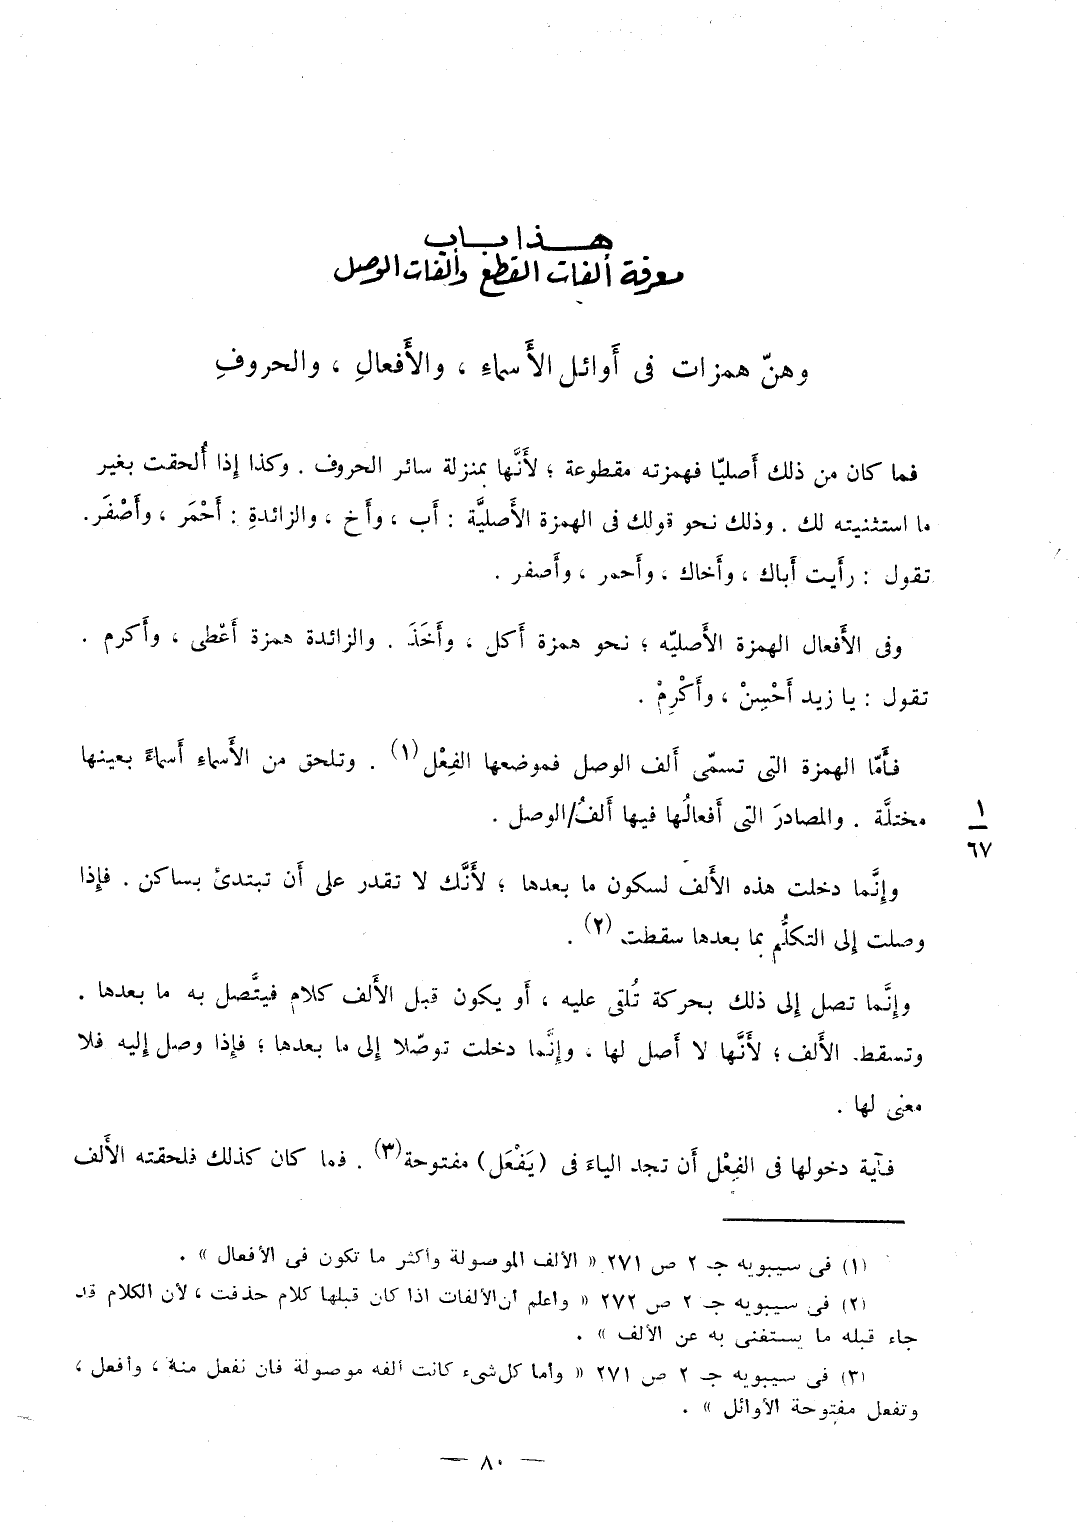 هـــذا بـــاب
معرفة ألفات القطع وألفات الوصل
وهنّ همزات فى أَوائل الأَسماءِ ، والأَفعالِ ، والحروفِ
فما كان من ذلك أَصليّا فهمزته مقطوعة ؛ لأَنَّها بمنزلة سائر الحروف . وكذا إِذا أُلحقت بغير
ما استثنيته لك . وذلك نحو قولك فى الهمزة الأَصليَّة : أَب ، وأَخ ، والزائدةِ : أَحْمَر ، وأَصْفَر.
تقول : رأَيت أَباك ، وأَخاك ، وأَحمر ، وأَصفر .
وفى الأَفعال الهمزة الأَصليّه ؛ نحو همزة أَكل ، وأَخَذَ . والزائدة همزة أَعْطى ، وأَكرم .
تقول : يا زيد أَحْسِنْ ، وأَكْرِمْ .
فأَمّا الهمزة التى تسمّى أَلف الوصل فموضعها الفِعْل(١) . وتلحق من الأَسماءِ أَسماءً بعينها
مختلَّة . والمصادرَ التى أَفعالُها فيها أَلفُ/الوصل .
١
٦٧
وإِنَّما دخلت هذه الأَلف لسكون ما بعدها ؛ لأَنَّك لا تقدر على أَن تبتدئ بساكن . فإِذا
وصلت إِلى التكلُّم بما بعدها سقطت (٢) .
وإِنَّما تصل إِلى ذلك بحركة تُلقى عليه ، أَو يكون قبل الأَلف كلام فيتَّصل به ما بعدها .
وتسقط. الأَلف ؛ لأَنَّها لا أَصل لها ، وإِنَّما دخلت توصّلا إِلى ما بعدها ؛ فإِذا وصل إِليه فلا
معنى لها .
فآية دخولها فى الفِعْل أَن تجد الياءَ فى (يَفْعَل) مفتوحة(٣) . فما كان كذلك فلحقته الأَلف
(١) فى سيبويه جـ ٢ ص ٢٧١ « الألف الموصولة وأكثر ما تكون فى الأفعال » .
(٢) فى سيبويه جـ ٢ ص ٢٧٢ « واعلم أن الألفات اذا كان قبلها كلام حذفت ، لأن الكلام قد
جاء قبله ما يستغنى به عن الألف » .
(٣) فى سيبويه جـ ٢ ص ٢٧١ « وأما كل شىء كانت ألفه موصولة فان نفعل منه ، وأفعل ،
وتفعل مفتوحة الأوائل » .
— ٨٠ —